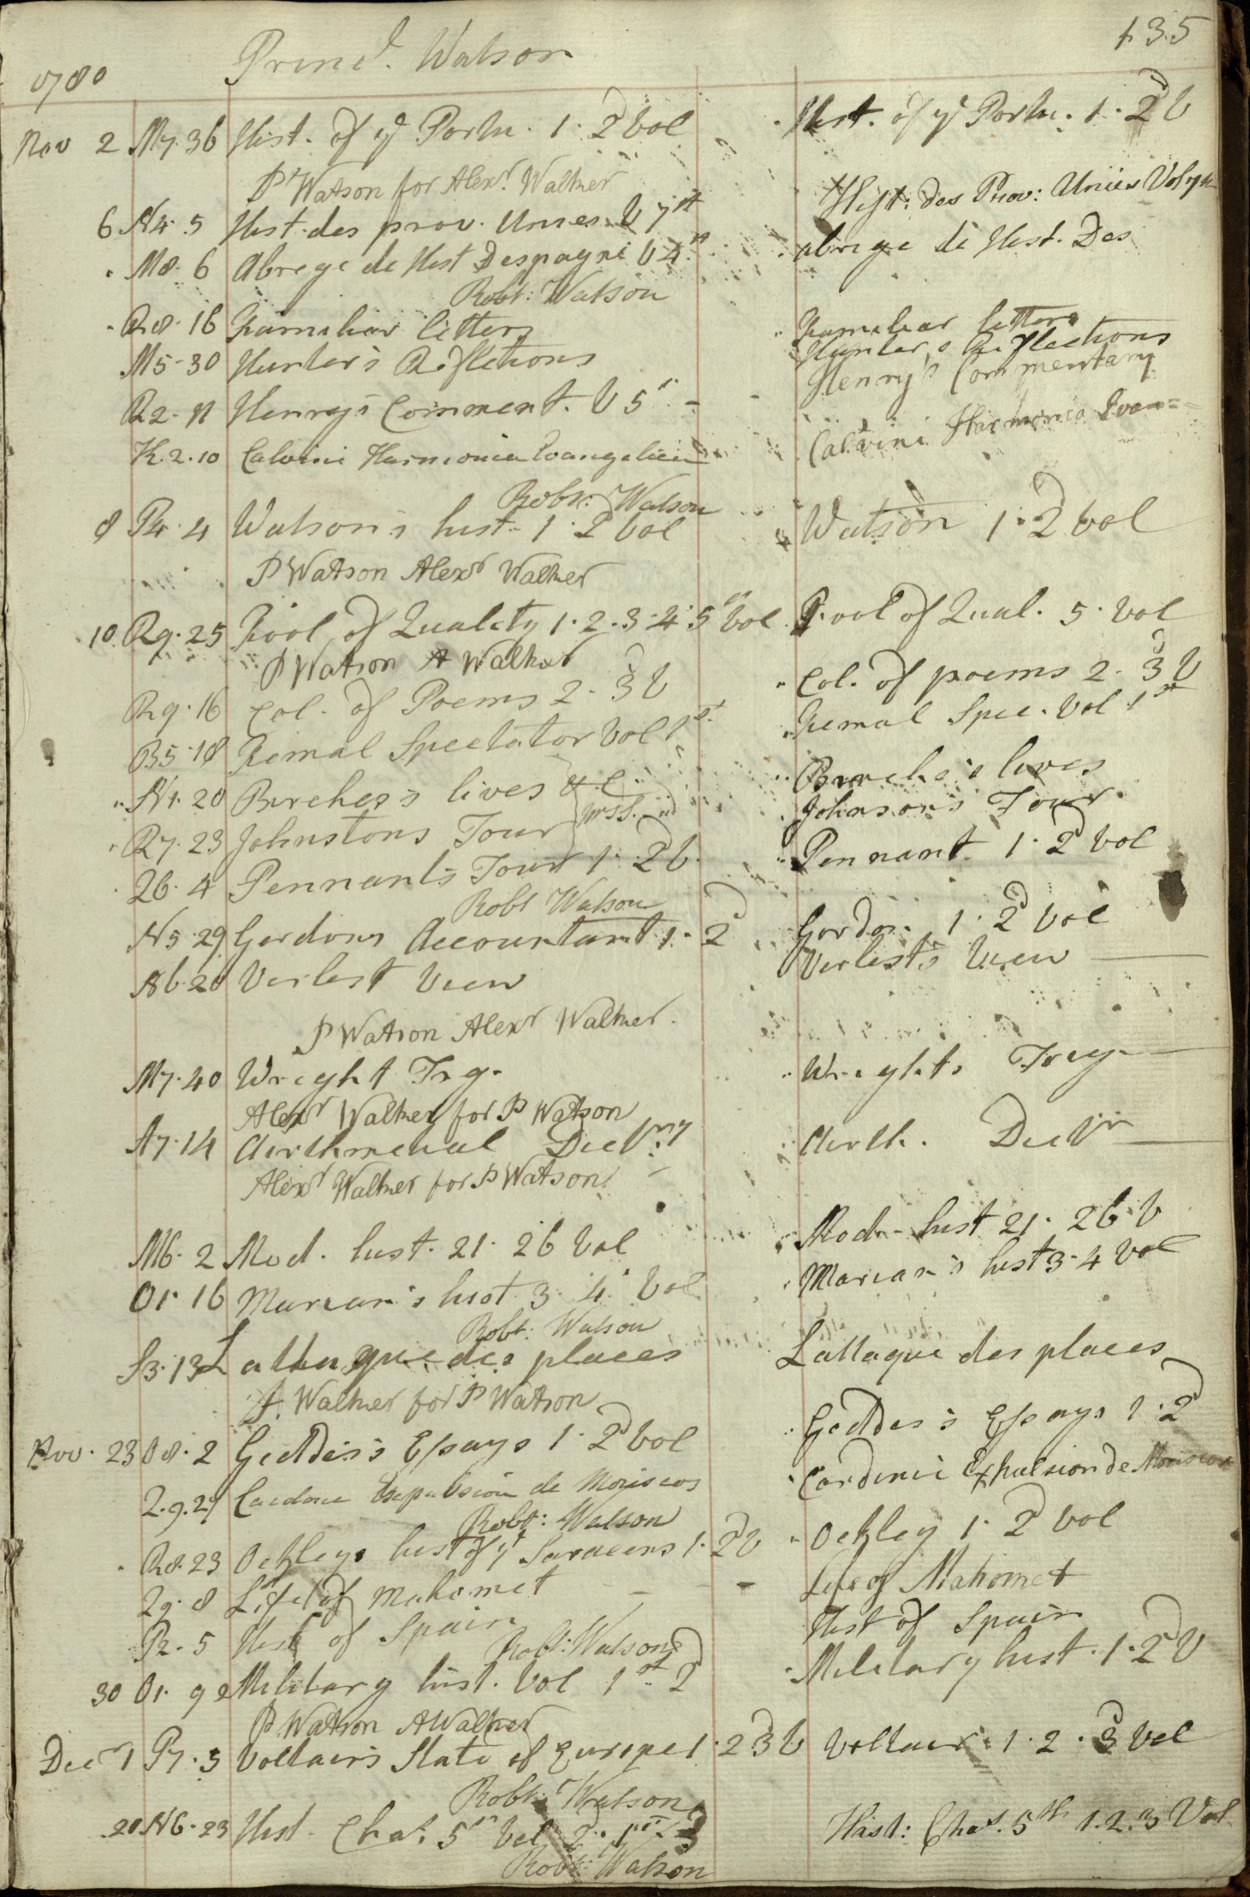 135
1780 Princl. Watson
Nov 2 M7.36 Hist. of ye Portu. 1. 2d Vol Hist. of ye Portu. 1. 2d V
P Watson for Alexr. Walker
6 N4.5 Hist. des prov. Unies. V 7th Hist: des Prov: Unies Vol 7th
M8.6 Abrege de Hist Despagne V 4th abrege de Hist. Des
Robt: Watson
R8.16 Familiar letters Familiar letters
M5-30 Hunter's Reflections Hunter's Reflections
R2-11 Henry's Comment. V 5th Henry's Commentary
K.2.10 Calvini Harmonia Evangelica Calvini Harmonia Evan
Robt: Watson
8 P4.4 Watson's hist. 1. 2 Vol Watson 1. 2d Vol
P Watson Alexr Walker
10 R9.25 Fool of Quality 1.2.3.4.5th Vol Fool of Qual. 5. Vol
P Watson A Walker
R9.16 Col. of Poems 2. 3d V Col. of poems 2. 3d V
B5.18 Femal Spectator Vol 1st Femal Spec. Vol 1st
N1.20 Birches's lives &c Birche's lives
R7.23 Johnstons Tour Johnson's Tour
Q6.4 Pennant's Tour 1. 2d V. Pennant. 1. 2d Vol
Robt Watson
N5.29 Gordons Accountant 1. 2d Gordon. 1. 2d Vol
A6.20 Verlest View Verlest's View
P Watson Alexr Walker.
M7.40 Wright Trig. Wright's Trig.
Alexr Walker for P Watson
A7.14 Airthmetical Dictry Airth. Dictr
Alexr Walker for P Watson
M6.2 Mod. hist. 21. 26 Vol Mod. hist 21. 26 V
O1.16 Marian's hist. 3. 4. Vol Marian's hist 3. 4 Vol
Robt. Watson
S3.13 Lattaque des places Lattaque des places
A. Walker for P Watson
Nov. 23 O8.2 Geddes's Essays 1. 2d Vol Geddes's Essays 1. 2d
Q.9.27 Cardone Expulsion de Moriscos Cardonei Expulsion de Moriscos
Robt: Watson
R8.23 Ockleys hist of ye Saracens 1. 2d V Ockley 1. 2d Vol
Q9.8 Life of Mahomet Life of Mahomet
P2.5 Hist of Spain Hist of Spain
Robt: Watson
30 O1.9 Military hist. Vol 1st. 2d Military hist. 1. 2d V
P Watson A Walker
Decr 1 P7.3 Voltair's State of Europe 1. 2 3d V Voltair. 1. 2. 3d Vol
Robt. Watson
20 N6.23 Hist. Chas. 5th Vol 2d. 1st. 3 Hist: Chas. 5th 1.2.3 Vol
Robt: Watson